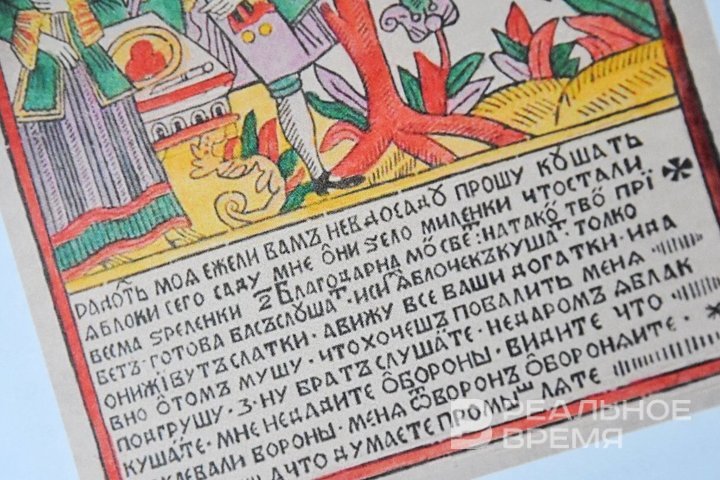 РАДОТЬ МОѦ ЕЖЕЛИ ВАМЪ НЕВДОСАДꙊ ПРОШУ КꙊШАТЬ
ѦБЛОКИ СЕГО САДУ МНЕ ОНИ ЅЕЛО МИЛЕНКИ ЧТОСТАЛИ
ВЕСМА ЅРЕЛЕНКИ 2 БЛАГОДАРНА МОСВЕТ: НАТАКО ТВО ПРІ
ВЕТЪ · ГОТОВА ВАСЪ СЛꙊШАТ · ИСИ ѦБЛОЧЕКЪ КУШАТ · ТОЛКО
ОНИЖ БУТЪ СЛАТКИ · АВИЖУ ВСЕ ВАШИ ДОГАТКИ · ИДА
ВНО ОТОМЪ МУШУ · ЧТОХОЧЕШЪ ПОВАЛИТЬ МЕНА
ПОДГРУШУ · З · НУ БРАТЪ СЛУШАТЕ · НЕДАРОМЪ ѦБЛАК
КУШАТЕ · МНЕ НЕДАДИТЕ ОБОРОНЫ · ВИДИТЕ ЧТО
КЛЕВАЛИ ВОРОНЫ · МЕНА ѾВОРОНЪ ОБОРОНАИТЕ ·
АЧТО ДУМАЕТЕ ПРОМЫШЛАТЕ
РЕАЛЬНОЕ
ВРЕМЯ